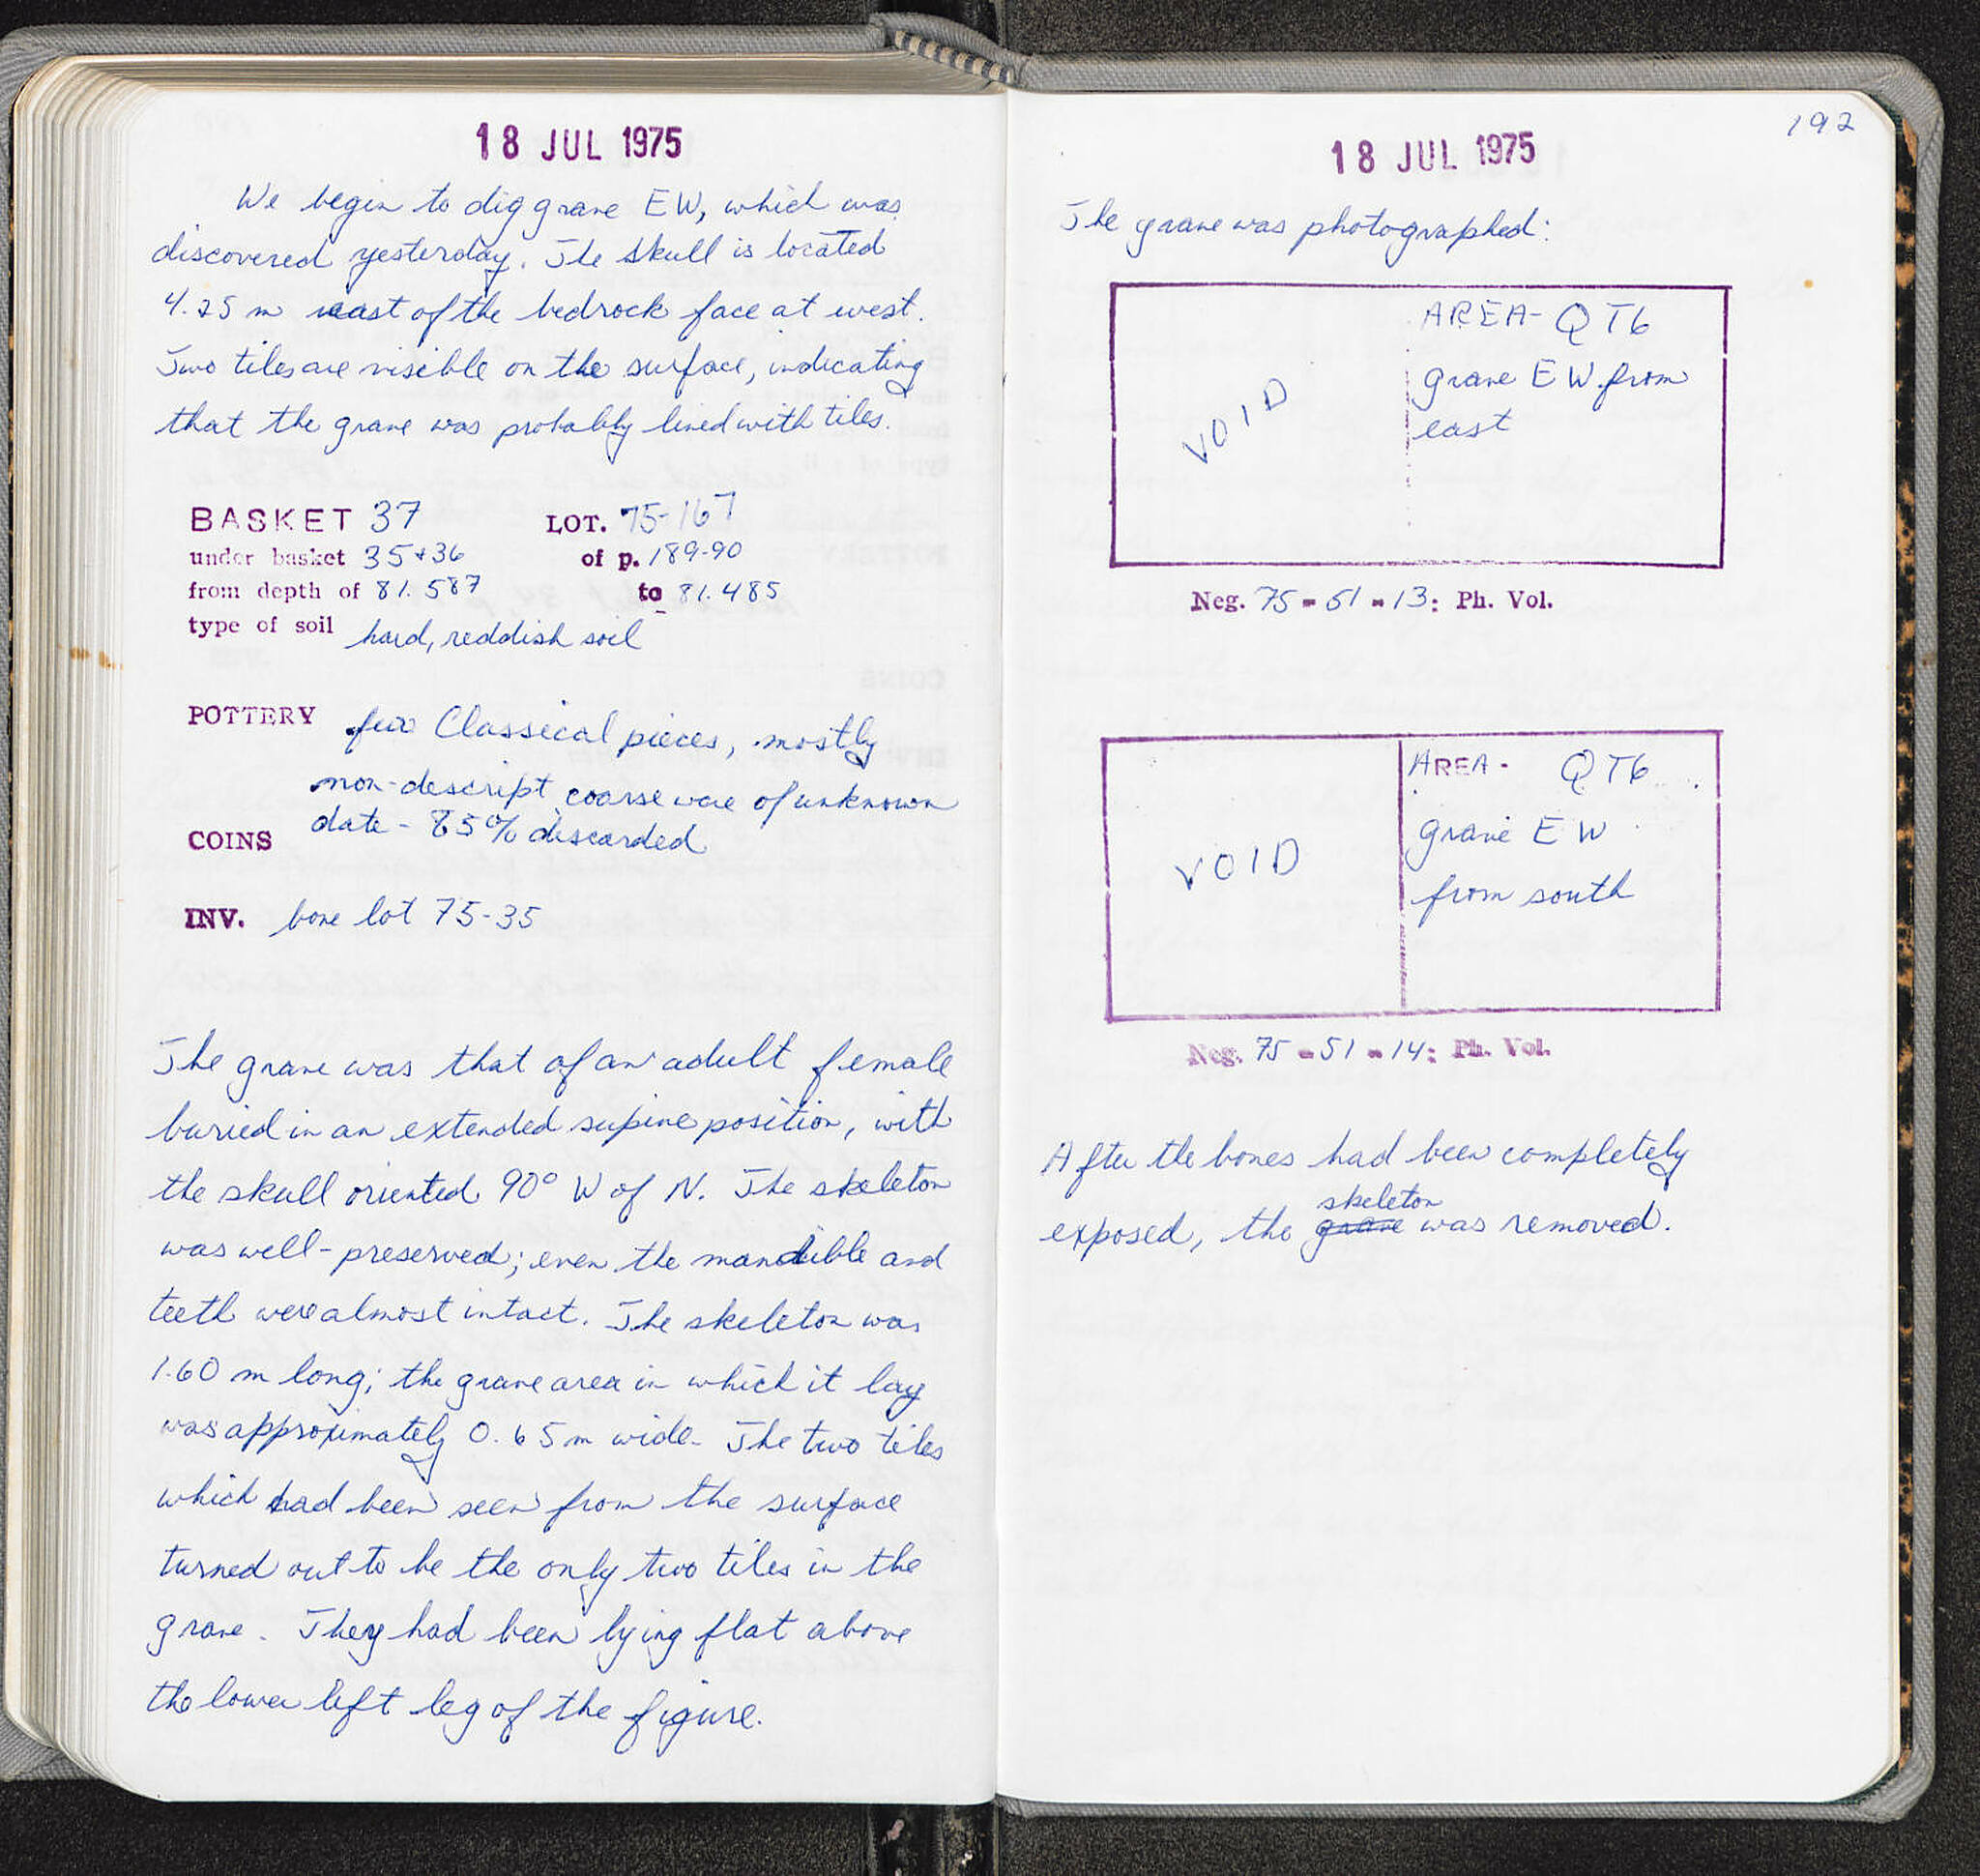 18 JUL 1975
We begin to dig grave EW, which was
discovered yesterday. The skull is located
4.25 m east of the bedrock face at west.
Two tiles are visible on the surface, indicating
that the grave was probably lined with tiles.
BASKET 37 LOT. 75-167
under basket 35+36 of p. 189-90
from depth of 81.587 to 81.485
type of soil hard, reddish soil
POTTERY few Classical pieces, mostly
non-descript coarse ware of unknown
date - 85% discarded
COINS
INV. bone lot 75-35
The grave was that of an adult female
buried in an extended supine position, with
the skull oriented 90° W of N. The skeleton
was well-preserved; even the mandible and
teeth were almost intact. The skeleton was
1.60 m long; the grave area in which it lay
was approximately 0.65 m wide. The two tiles
which had been seen from the surface
turned out to be the only two tiles in the
grave. They had been lying flat above
the lower left leg of the figure.
192
18 JUL 1975
The grave was photographed:
VOID
AREA- QT6
grave EW from
east
Neg. 75-51-13: Ph. Vol.
VOID
AREA- QT6
grave EW
from south
Neg. 75-51-14: Ph. Vol.
After the bones had been completely
skeleton
exposed, the grave was removed.